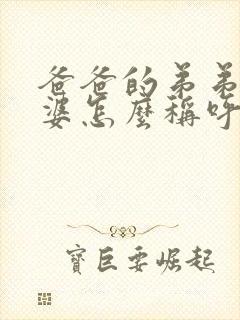 爸爸的弟弟
婆怎麼稱呼
寶臣要崛起